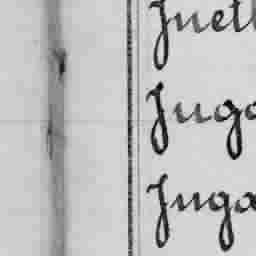 Juett
Juga
Juga